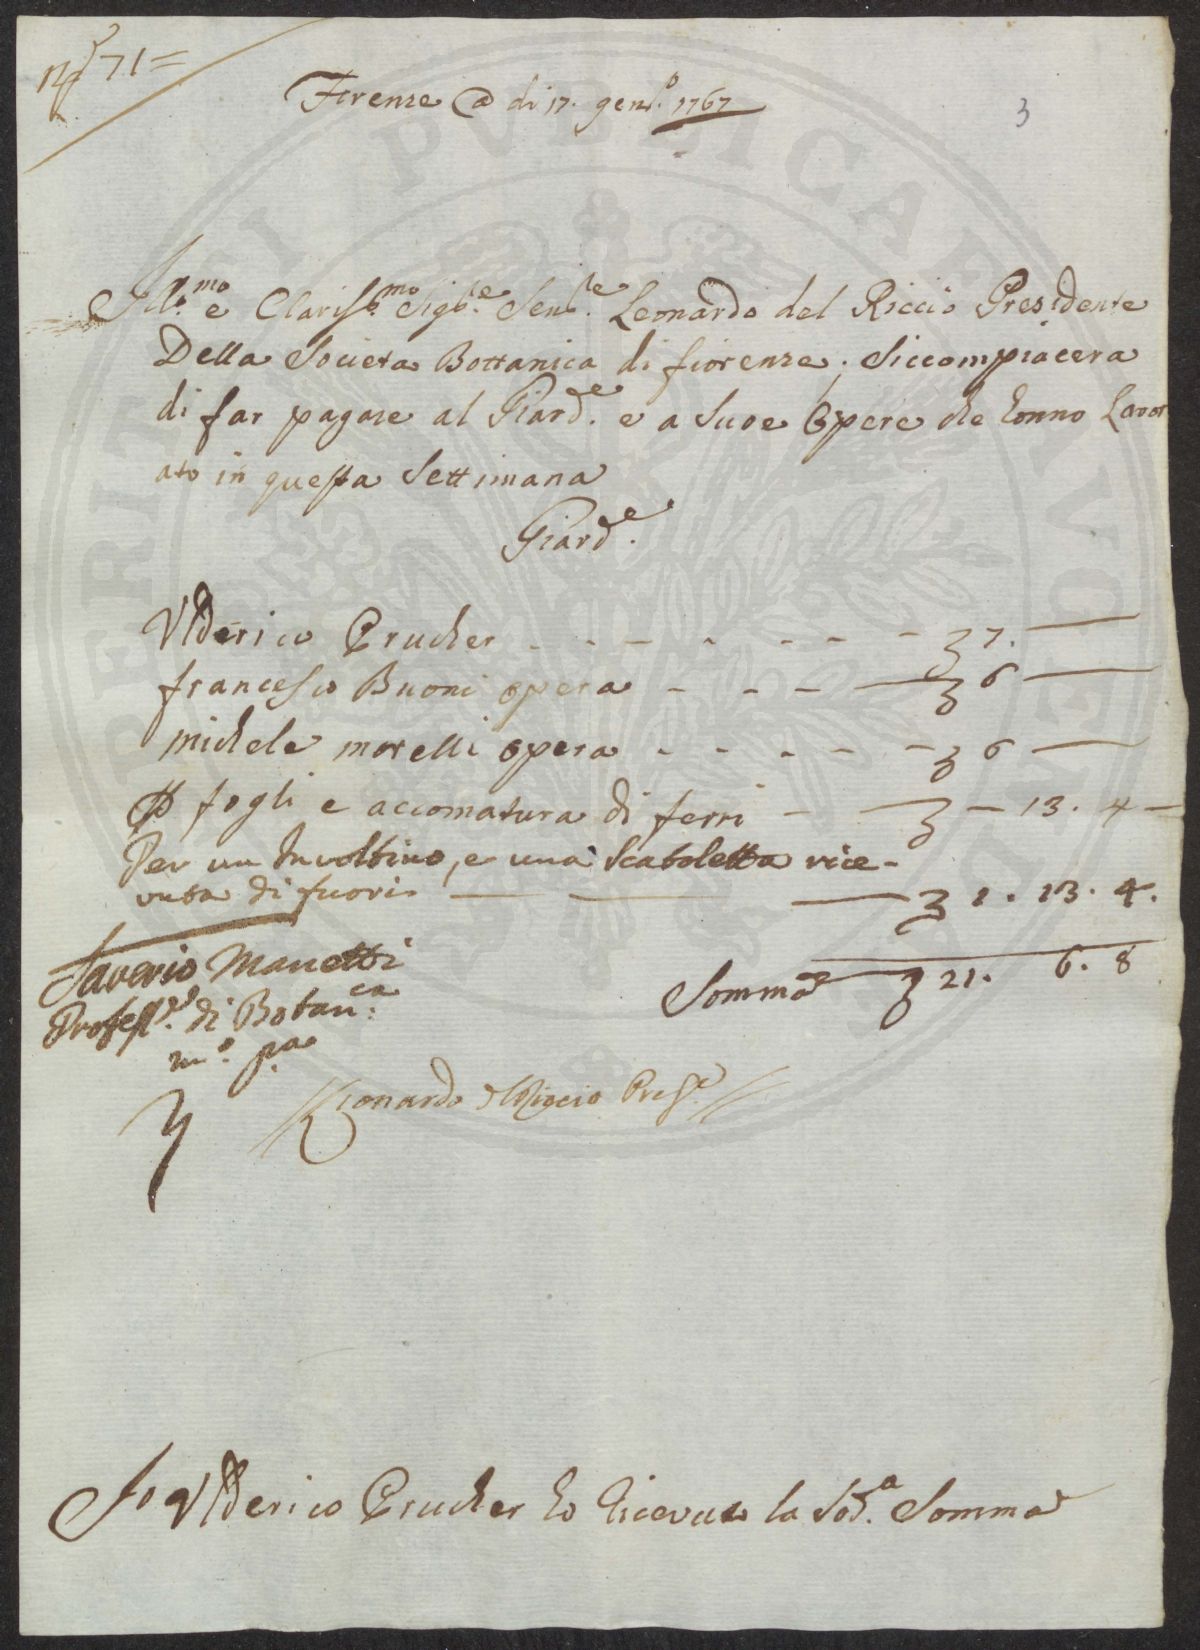 N° 71=
Firenze @ di 17. gen.o 1767
3
Ill.mo e Clariss.mo Sig.re Sen.re Leonardo del Riccio Presidente
Della Societa Bottanica di fiorenze. Siccompiacera
di far pagare al Giard.e e a Suoe Opere che honno Lavor
ato in questa Settimana
Giard.e
Ulderico Prucher - - - - - - - 7. —
francesco Buoni opera - - - — 6 —
michele morelli opera - - - - - - 6 —
P fogli e accomatura di ferri - — — 13. 4 —
Per un Involtino, e una Scatoletta rice-
vuta di fuori — — — 1. 13. 4.
Somma 21. 6. 8
Saverio Manetti
Profess.re di Botan.ca
m.o p.a
Leonardo del Riccio Pres.e
Io Ulderico Prucher ho ricevuto la Sod.a Somma
PERITI PVBLICAE